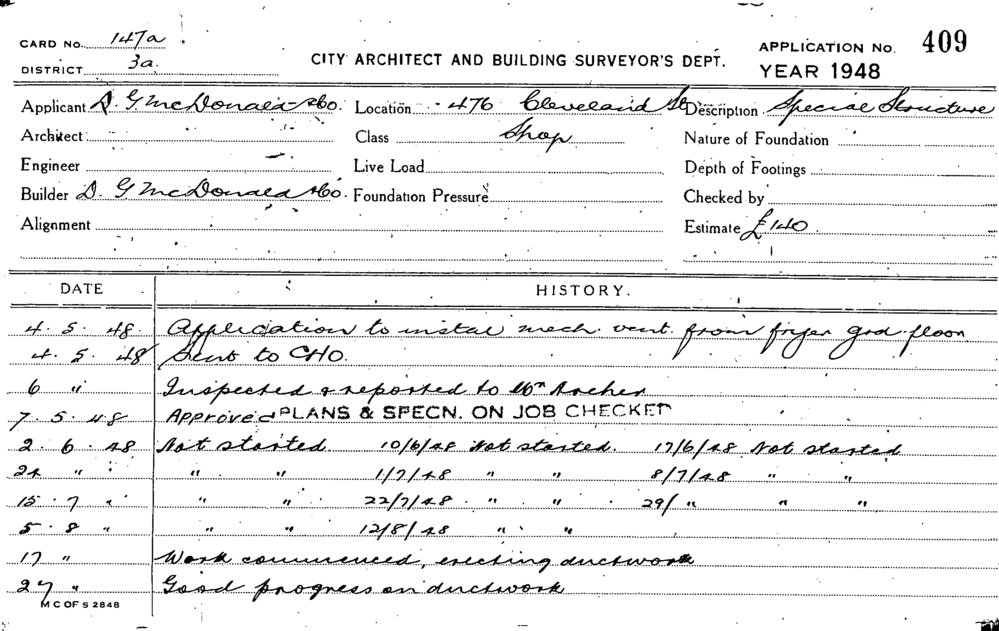 CARD No. 147a
DISTRICT 3a.
CITY ARCHITECT AND BUILDING SURVEYOR'S DEPT.
APPLICATION No. 409
YEAR 1948
Applicant D. G McDonald & Co. Location 476 Cleveland St Description Special Structure
Architect Class Shop Nature of Foundation
Engineer Live Load Depth of Footings
Builder D. G McDonald & Co. Foundation Pressure Checked by
Alignment Estimate £140
DATE HISTORY.
4. 5. 48. Application to instal mech. vent. from fryer grd. floor
4. 5. 48 Sent to CHO.
6 " Inspected & reported to Mr Archer
7. 5. 48 Approved PLANS & SPECN. ON JOB CHECKED
2. 6. 48 Not started. 10/6/48 Not started. 17/6/48 Not started
24 " " " 1/7/48 " " 8/7/48 " "
15. 7 " " " 22/7/48 " " 29/ " " "
5. 8 " " " 12/8/48 " "
17 " Work commenced, erecting ductwork
27 " Good progress on ductwork
M C OF S 2848